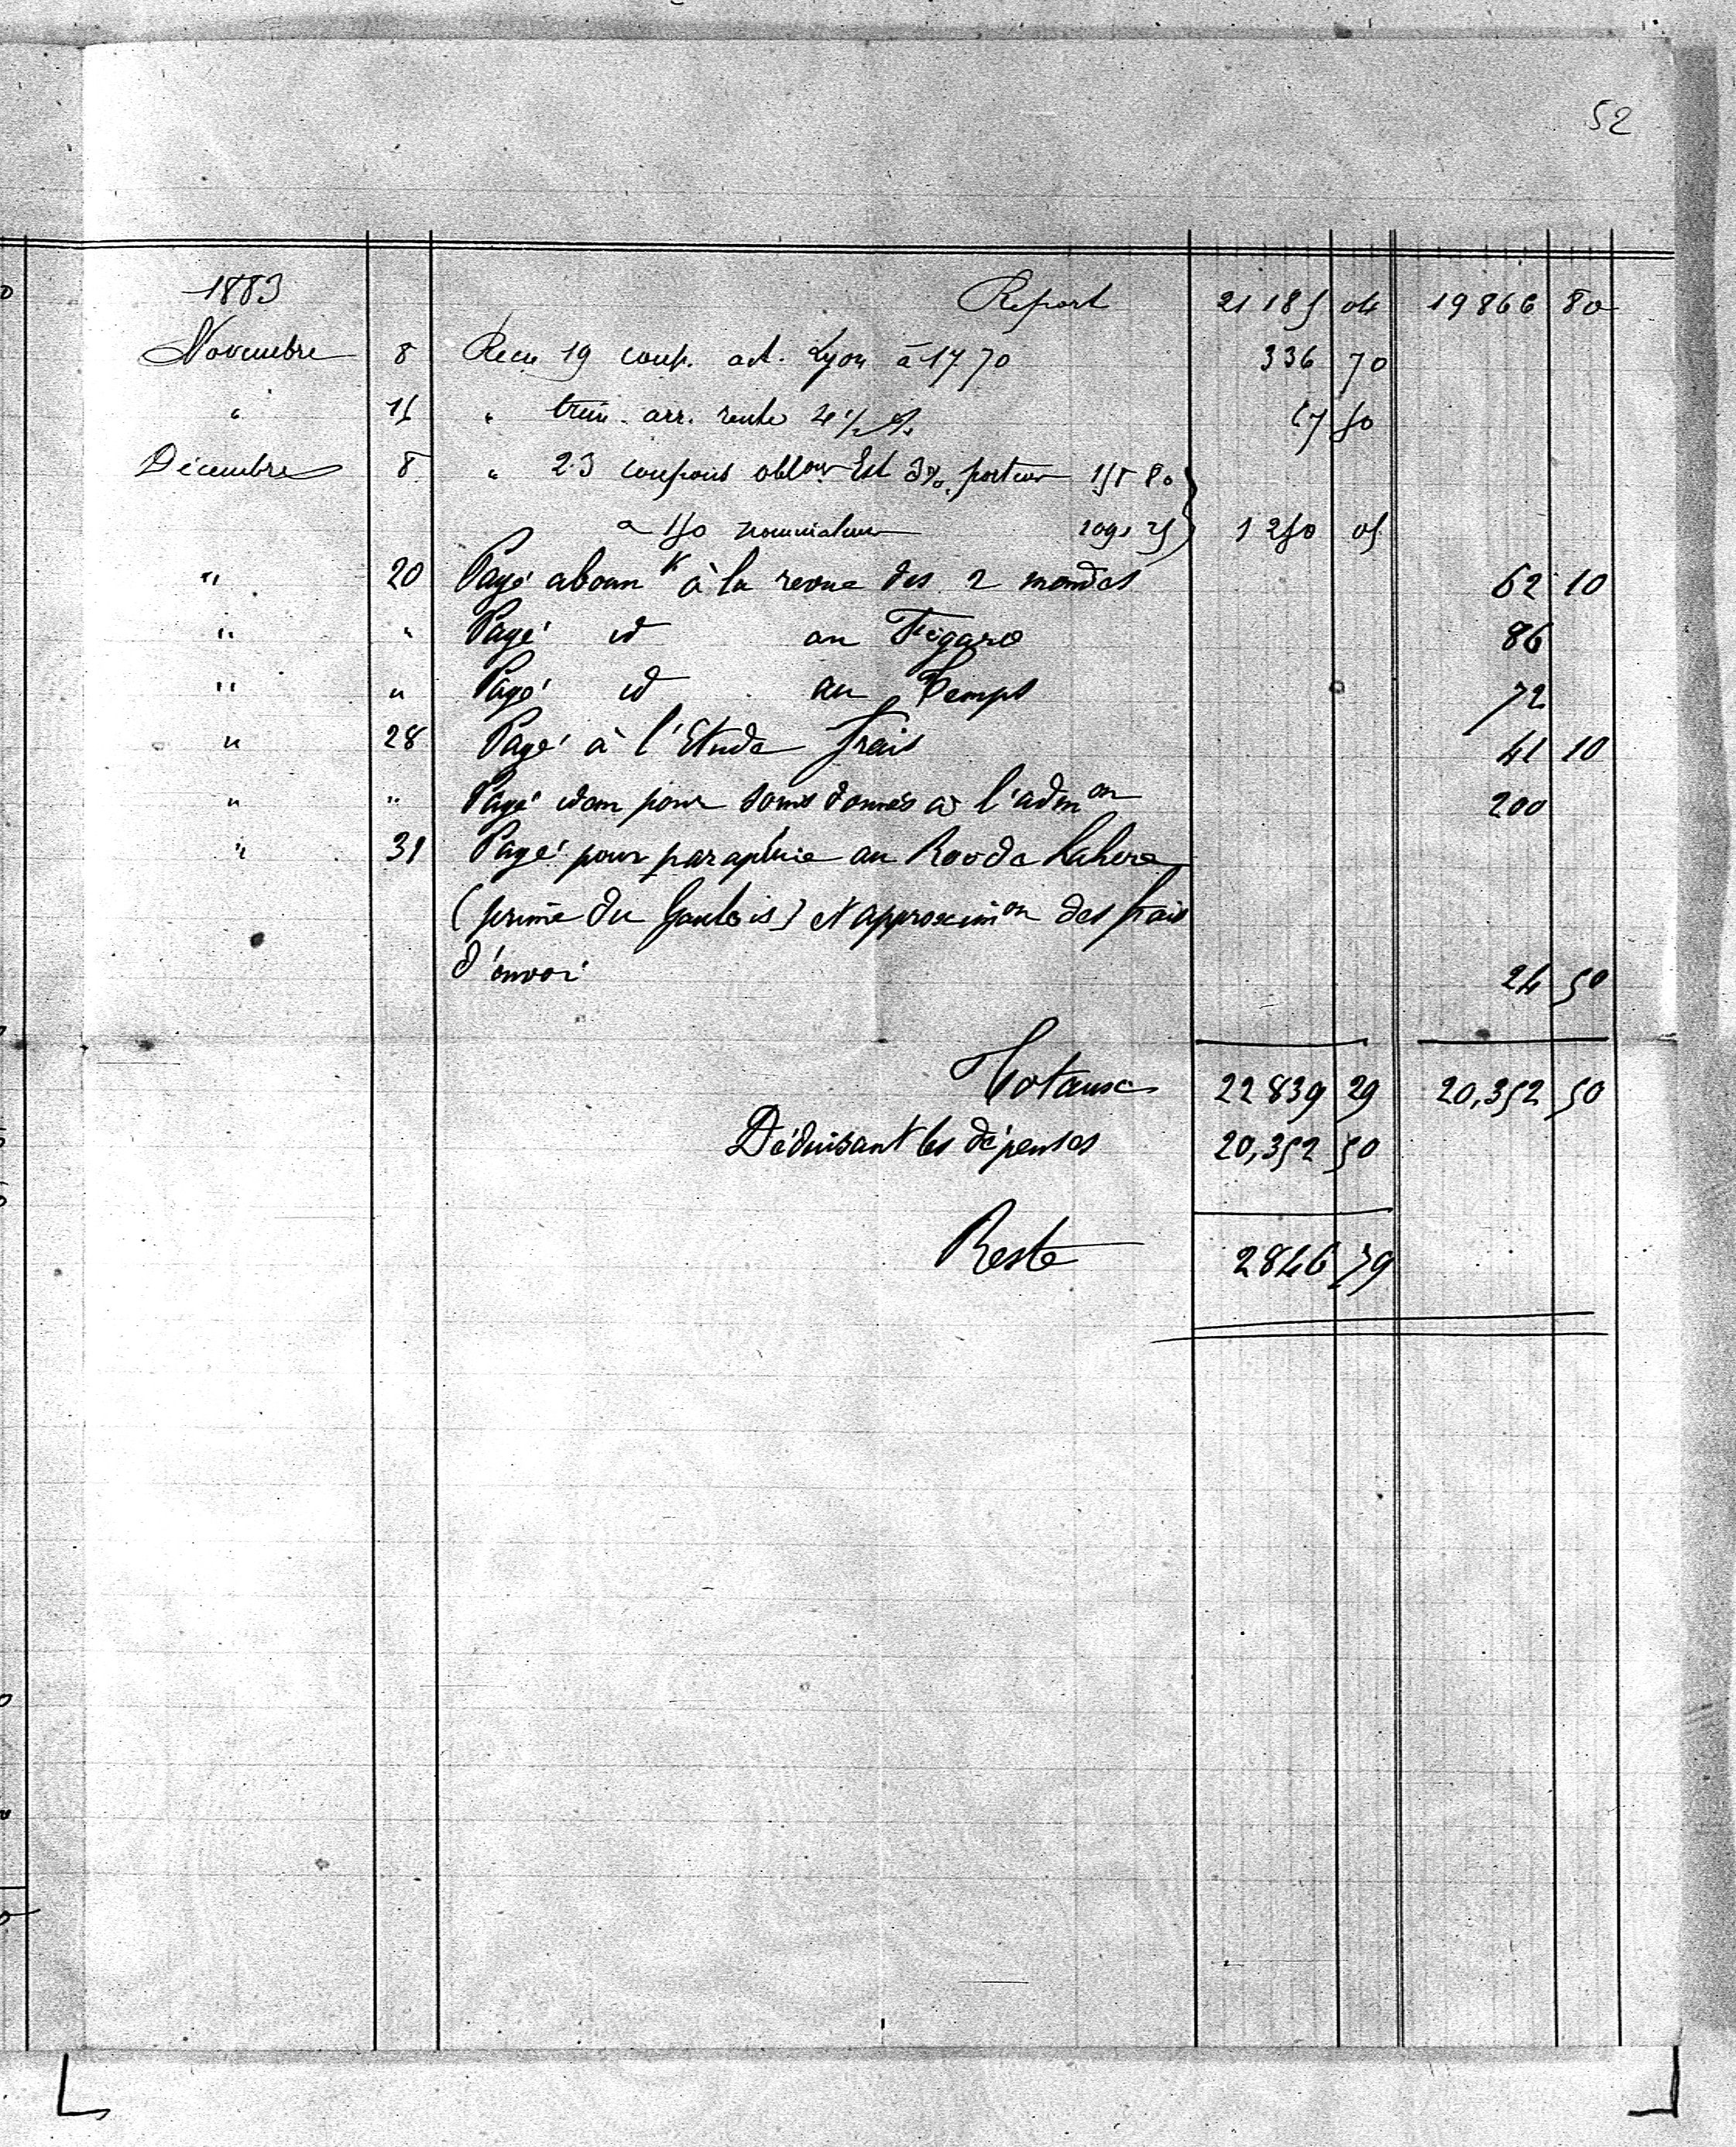 52
1883 Report 21 185 04 19866 80
Novembre 8 Recu 19 coup. act. Lyon à 17 70 336 70
" 16 " trim. arr. rente 4 1/2 % 67 50
Décembre 8 " 23 coupons oblons Est 3% porteur 158 80
a 150 nominatives 1091 25 1 250 05
" 20 Payé abonnt à la revue des 2 mondes 62 10
" " Payé id au Figaro 86
" " Payé id au Temps 72
" 28 Payé à l'Etude frais 41 10
" " Payé idem pour soins donnés à l'admon 200
" 31 Payé pour parapluie au
(prime du Gaulois) et approximon des frais
d'envoi 24 50
Totaux 22 839 29 20,352 50
Déduisant les dépenses 20,352 50
Reste 2846 79